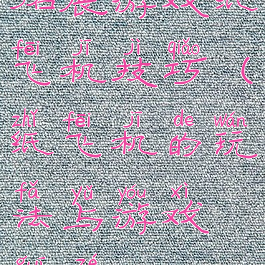 拓展游戏纸
fēi jī jì qiǎo
飞机技巧（
zhǐ fēi jī de wán
纸飞机的玩
fǎ yǔ yóu xì
法与游戏
guī zé